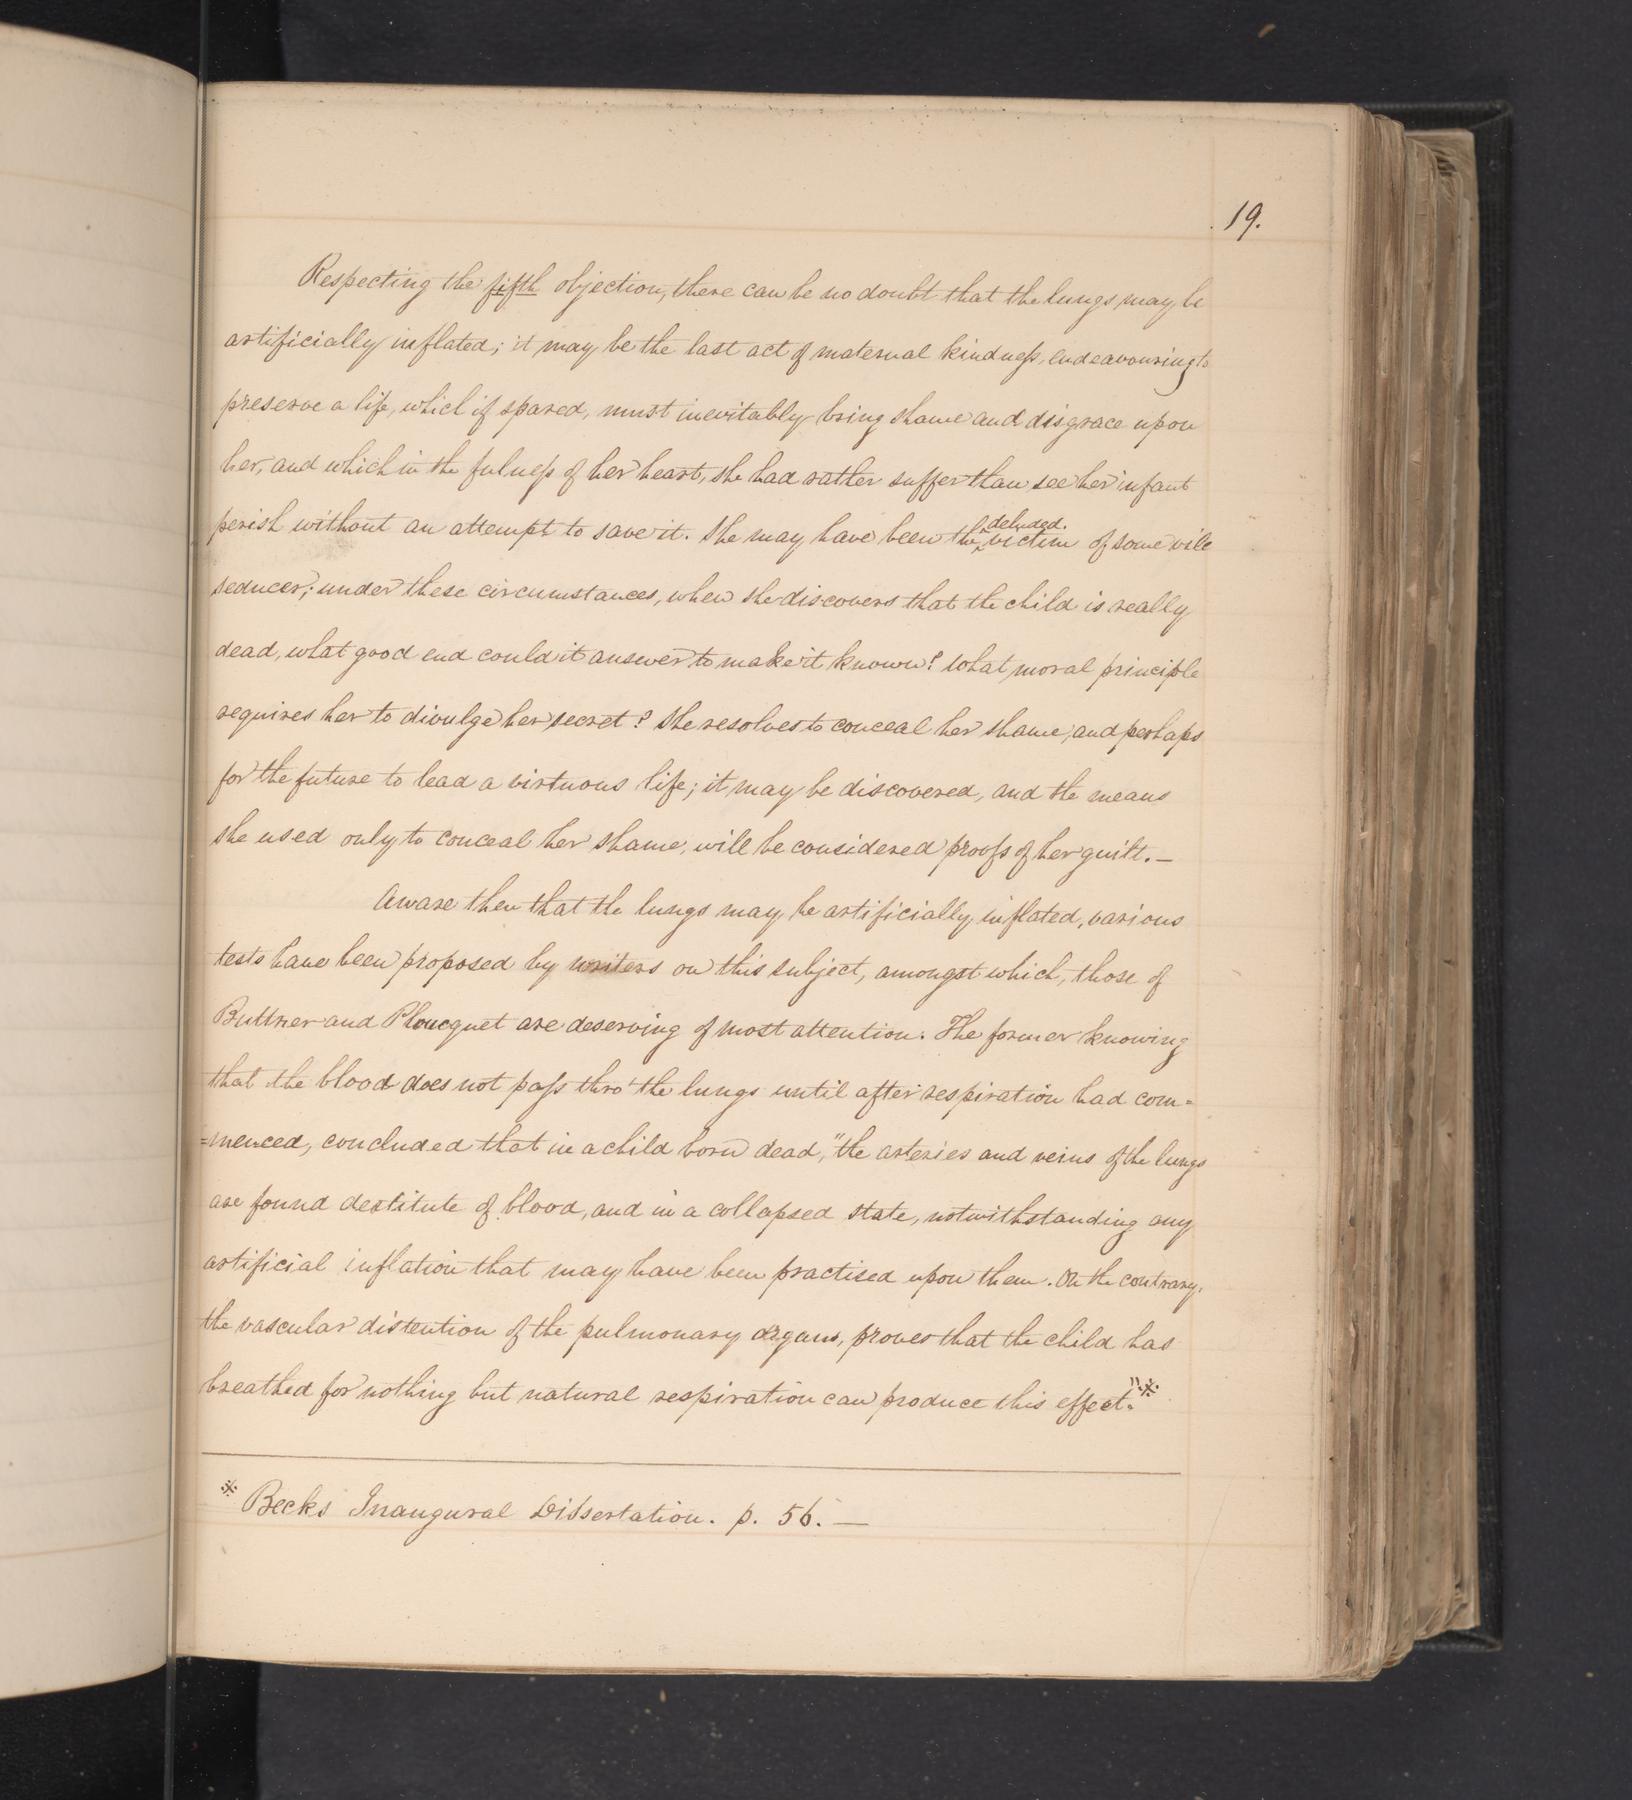 19.
Respecting the fifth objection, there can be no doubt that the lungs may be
artificially inflated; it may be the last act of maternal kindness, endeavouring to
preserve a life, which if spared, must inevitably bring shame and disgrace upon
her, and which in the fulness of her heart, she had rather suffer than see her infant
perish without an attempt to save it. She may have been the deluded victim of some vile
seducer; under these circumstances, when she discovers that the child is really
dead, what good end could it answer to make it known? What moral principle
requires her to divulge her secret? She resolves to conceal her shame, and perhaps
for the future to lead a virtuous life; it may be discovered, and the means
she used only to conceal her shame, will be considered proofs of her guilt.—
Aware then that the lungs may be artificially inflated, various
tests have been proposed by writers on this subject, amongst which, those of
Buttner and Ploucquet are deserving of most attention. The former knowing
that the blood does not pass thro' the lungs until after respiration had com=
=menced, concluded that in a child born dead, "the arteries and veins of the lungs
are found destitute of blood, and in a collapsed state, notwithstanding any
artificial inflation that may have been practised upon them. On the contrary,
the vascular distention of the pulmonary organs, proves that the child has
breathed for nothing but natural respiration can produce this effect."*
* Becks Inaugural Dissertation. p. 56.—